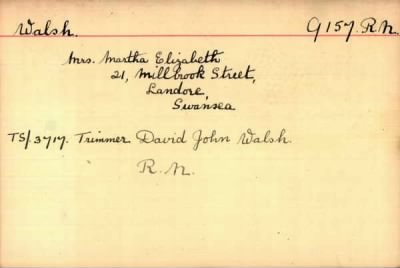 Walsh. 9157. R.N.
Mrs. Martha Elizabeth
21, Millbrook Street,
Landore,
Swansea
TS/3717. Trimmer David John Walsh.
R.N.